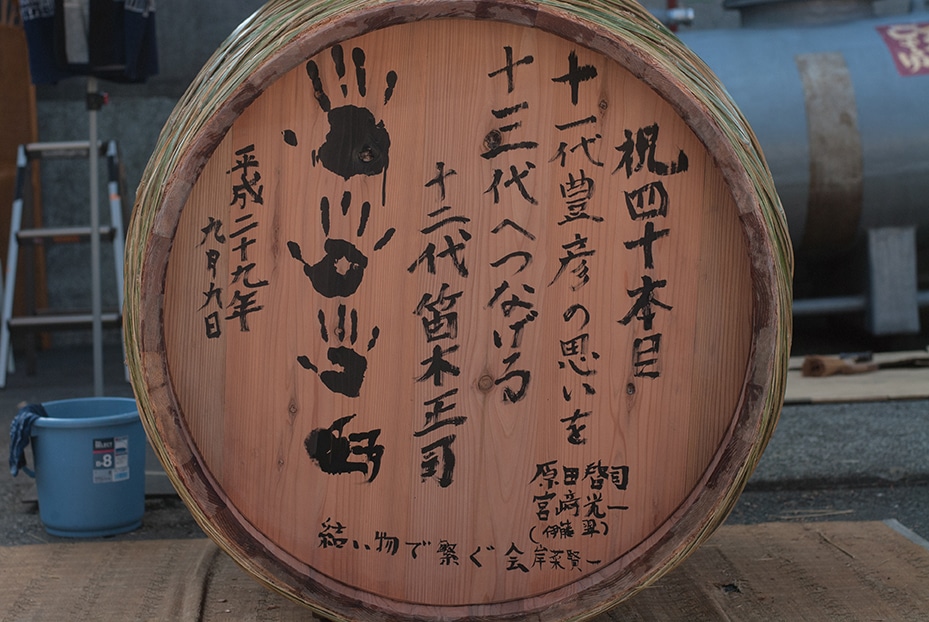 祝四十本目。
十一代豊彦の思いを
十三代へつなげる
十二代 笛木正司
平成二十九年
九月九日
原田啓司
宮﨑光一
(伊藤翠)
岸菜賢一
結い物で繋ぐ会
8